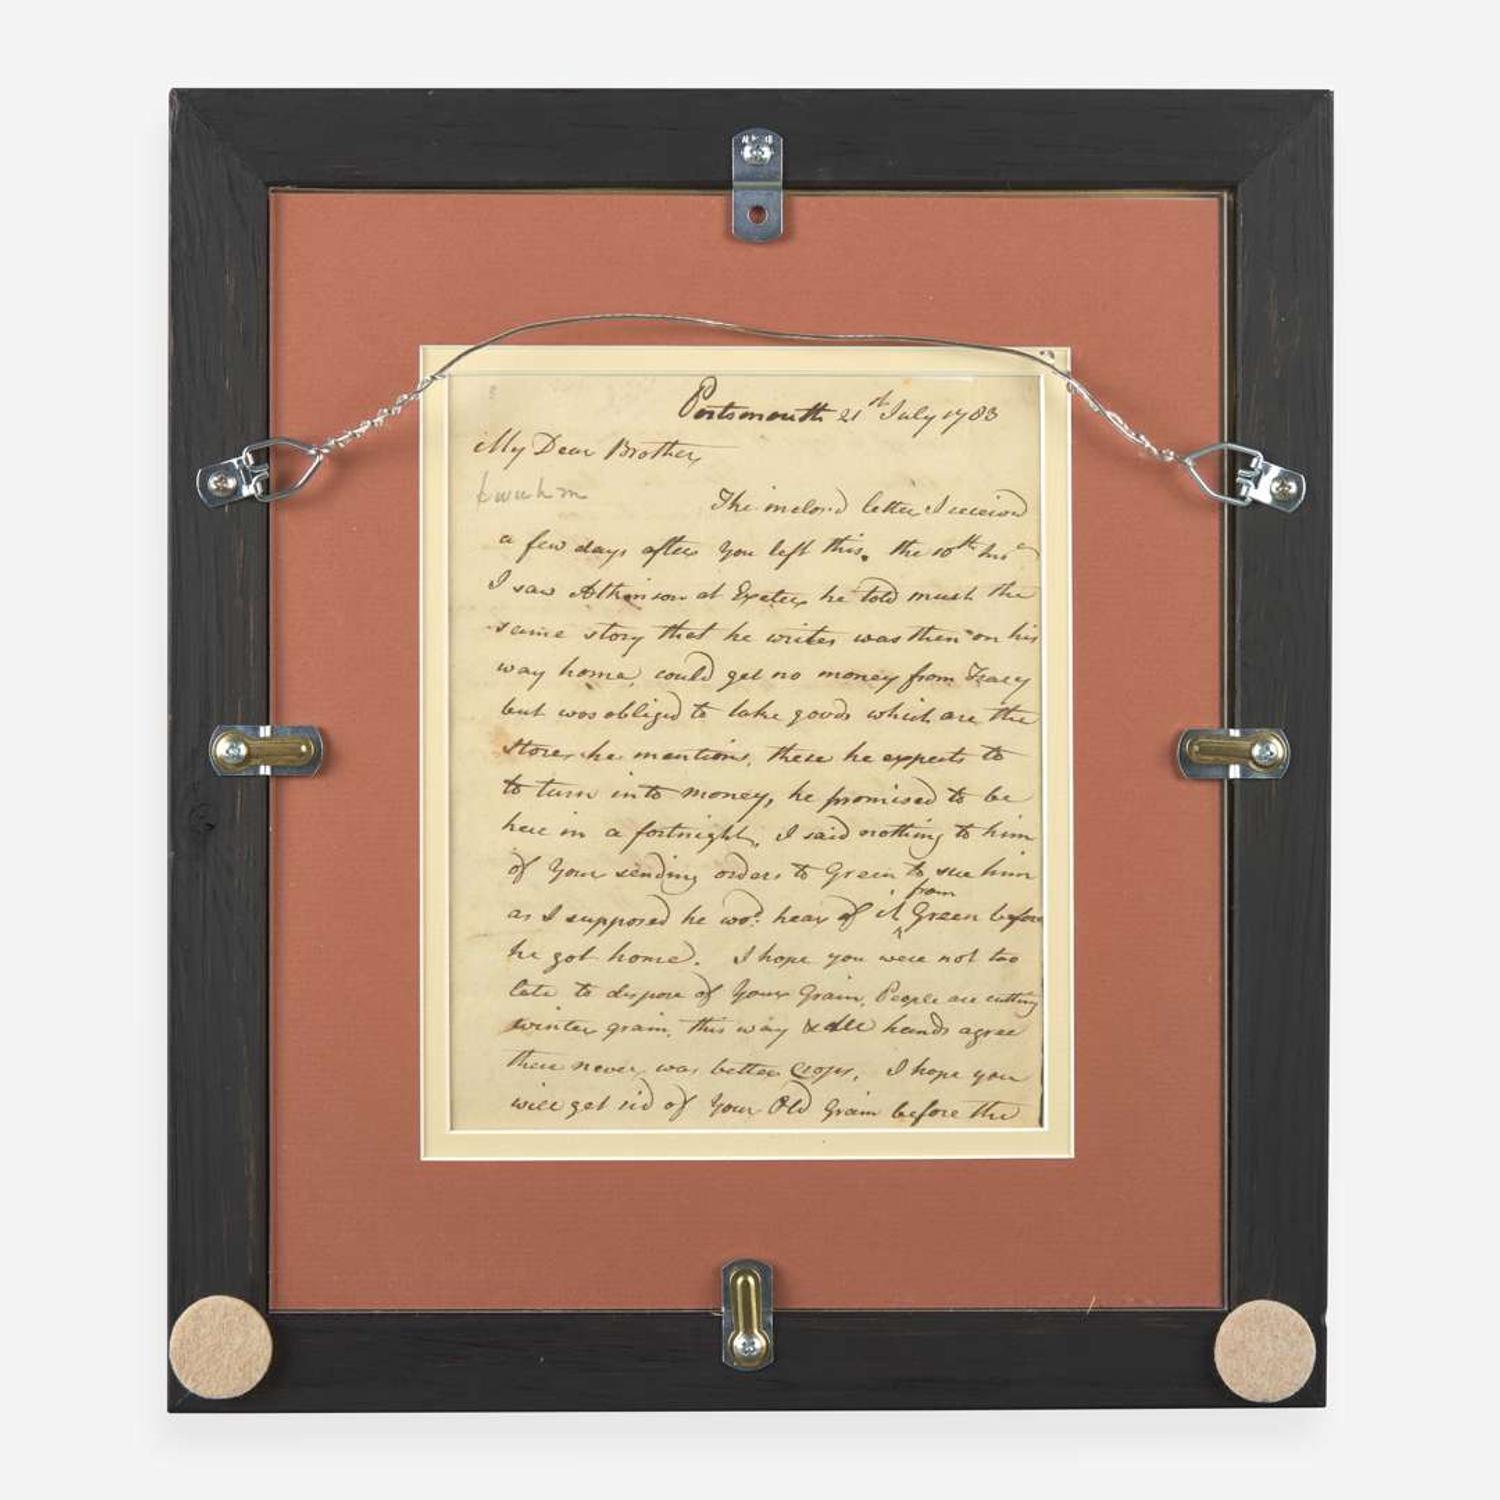 Portsmouth 21st July 1783
My Dear Brother
The inclos'd letter I receiv'd
a few days after you left this. the 10th
I saw Atkinson at Exeter he told much the
same story that he writes was then on his
way home, could get no money from Tracy
but was obliged to take goods which are the
stores he mentions, these he expects to
to turn into money, he promised to be
here in a fortnight, I said nothing to him
of Your sending orders to Green to sue him
as I supposed he wod: hear of it from Green before
he got home. I hope you were not too
late to dispose of Your Grain, People are cutting
winter grain, this way & all hands agree
there never was better Crops, I hope you
will get rid of Your Old Grain before the